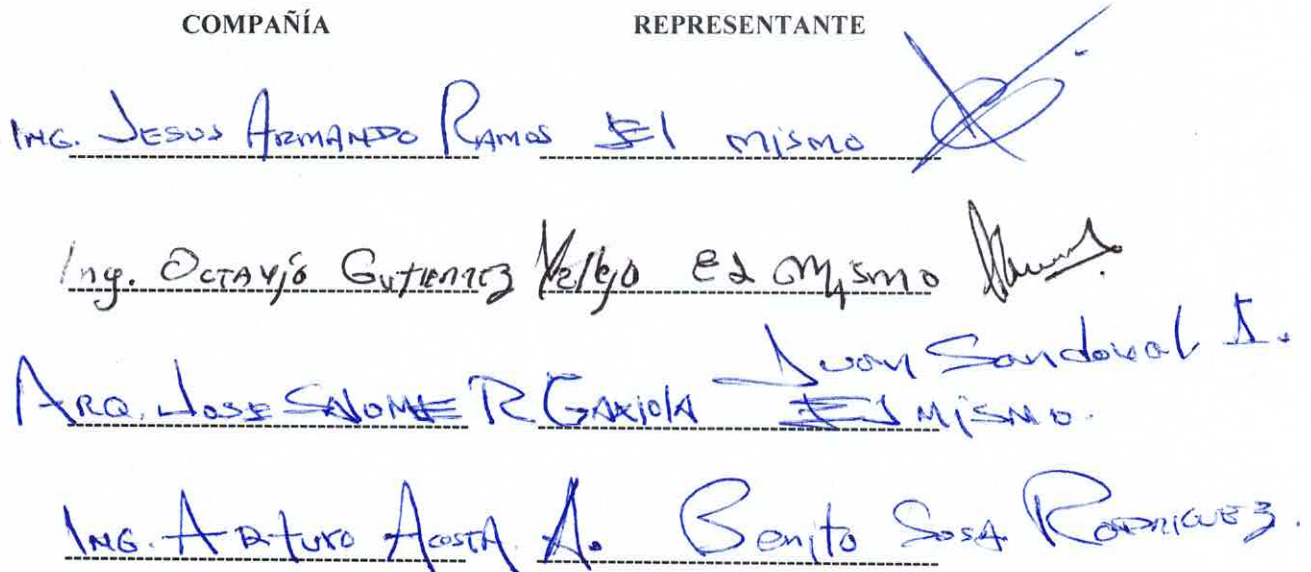 COMPAÑÍA REPRESENTANTE
ING. JESUS ARMANDO RAMOS El mismo
Ing. OCTAVIO GUTIERREZ Vallejo El Mismo
Juan Sandoval I.
ARQ. JOSE SALOME R GAXIOLA El MISMO.
ING. ARTURO ACOSTA A. Benito Sosa RODRIGUEZ.